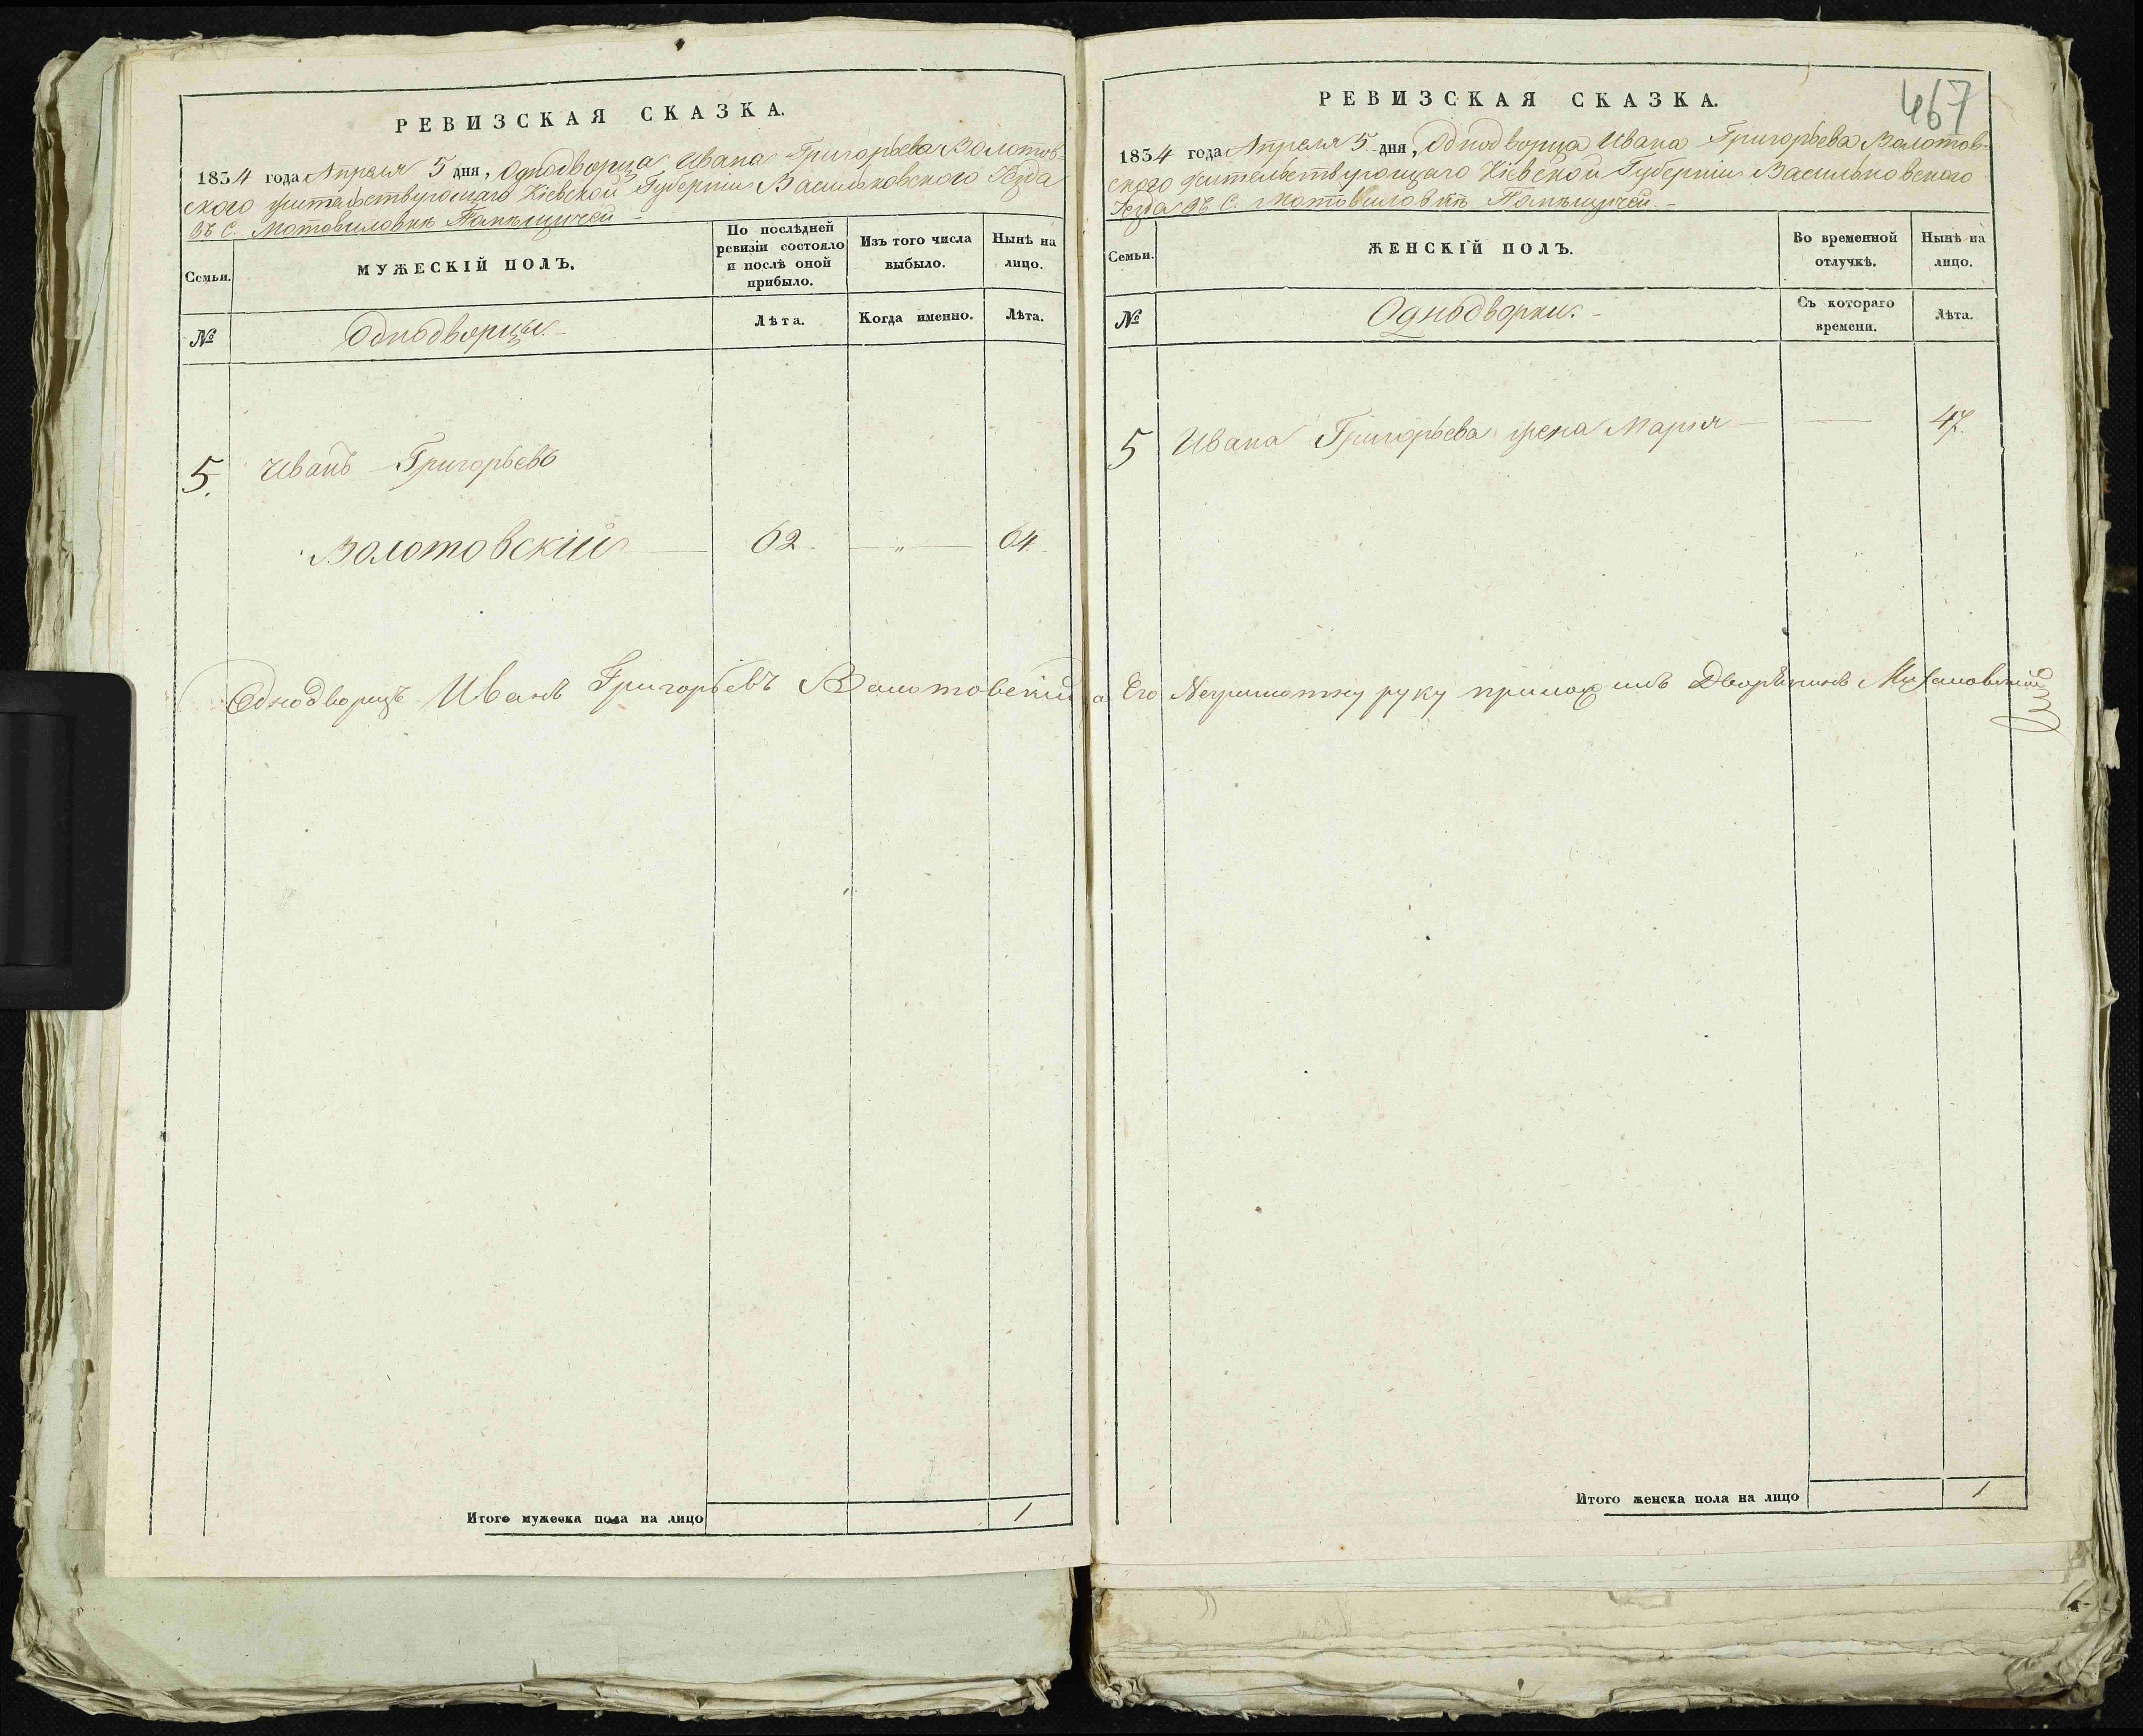 РЕВИЗСКАЯ СКАЗКА.
1834 года Апреля 5 дня, Однодворца Ивана Григорьева Волотов-
ского жительствующаго Кіевской Губерніи Васильковского Уезда
въ С. Мотовиловке Помѣщичей
Семьи.
МУЖЕСКІЙ ПОЛЪ.
По послѣдней ревизіи состояло и послѣ оной прибыло.
Изъ того числа выбыло.
Нынѣ на лицо.
№
Однодворцы
Лѣта.
Когда именно.
Лѣта.
5. Иванъ Григорьевъ
Волотовскій 62 — „ — 64
Однодворецъ Иванъ Григорьевъ Волотовский а Его Неграмотну руку приложилъ Дворянинъ
Итого мужеска пола на лицо 1
467
РЕВИЗСКАЯ СКАЗКА.
1834 года Апреля 5 дня, Однодворца Ивана Григорьева Волотов-
ского жительствующаго Кіевской Губерніи Васильковского
Уезда въ С. Мотовиловкѣ Помѣщичей
Семьи.
ЖЕНСКІЙ ПОЛЪ.
Во временной отлучкѣ.
Нынѣ на лицо.
№
Однодворки.
Съ котораго времени.
Лѣта.
5 Ивана Григорьева жена Марія — 47.
Итого женска пола на лицо 1